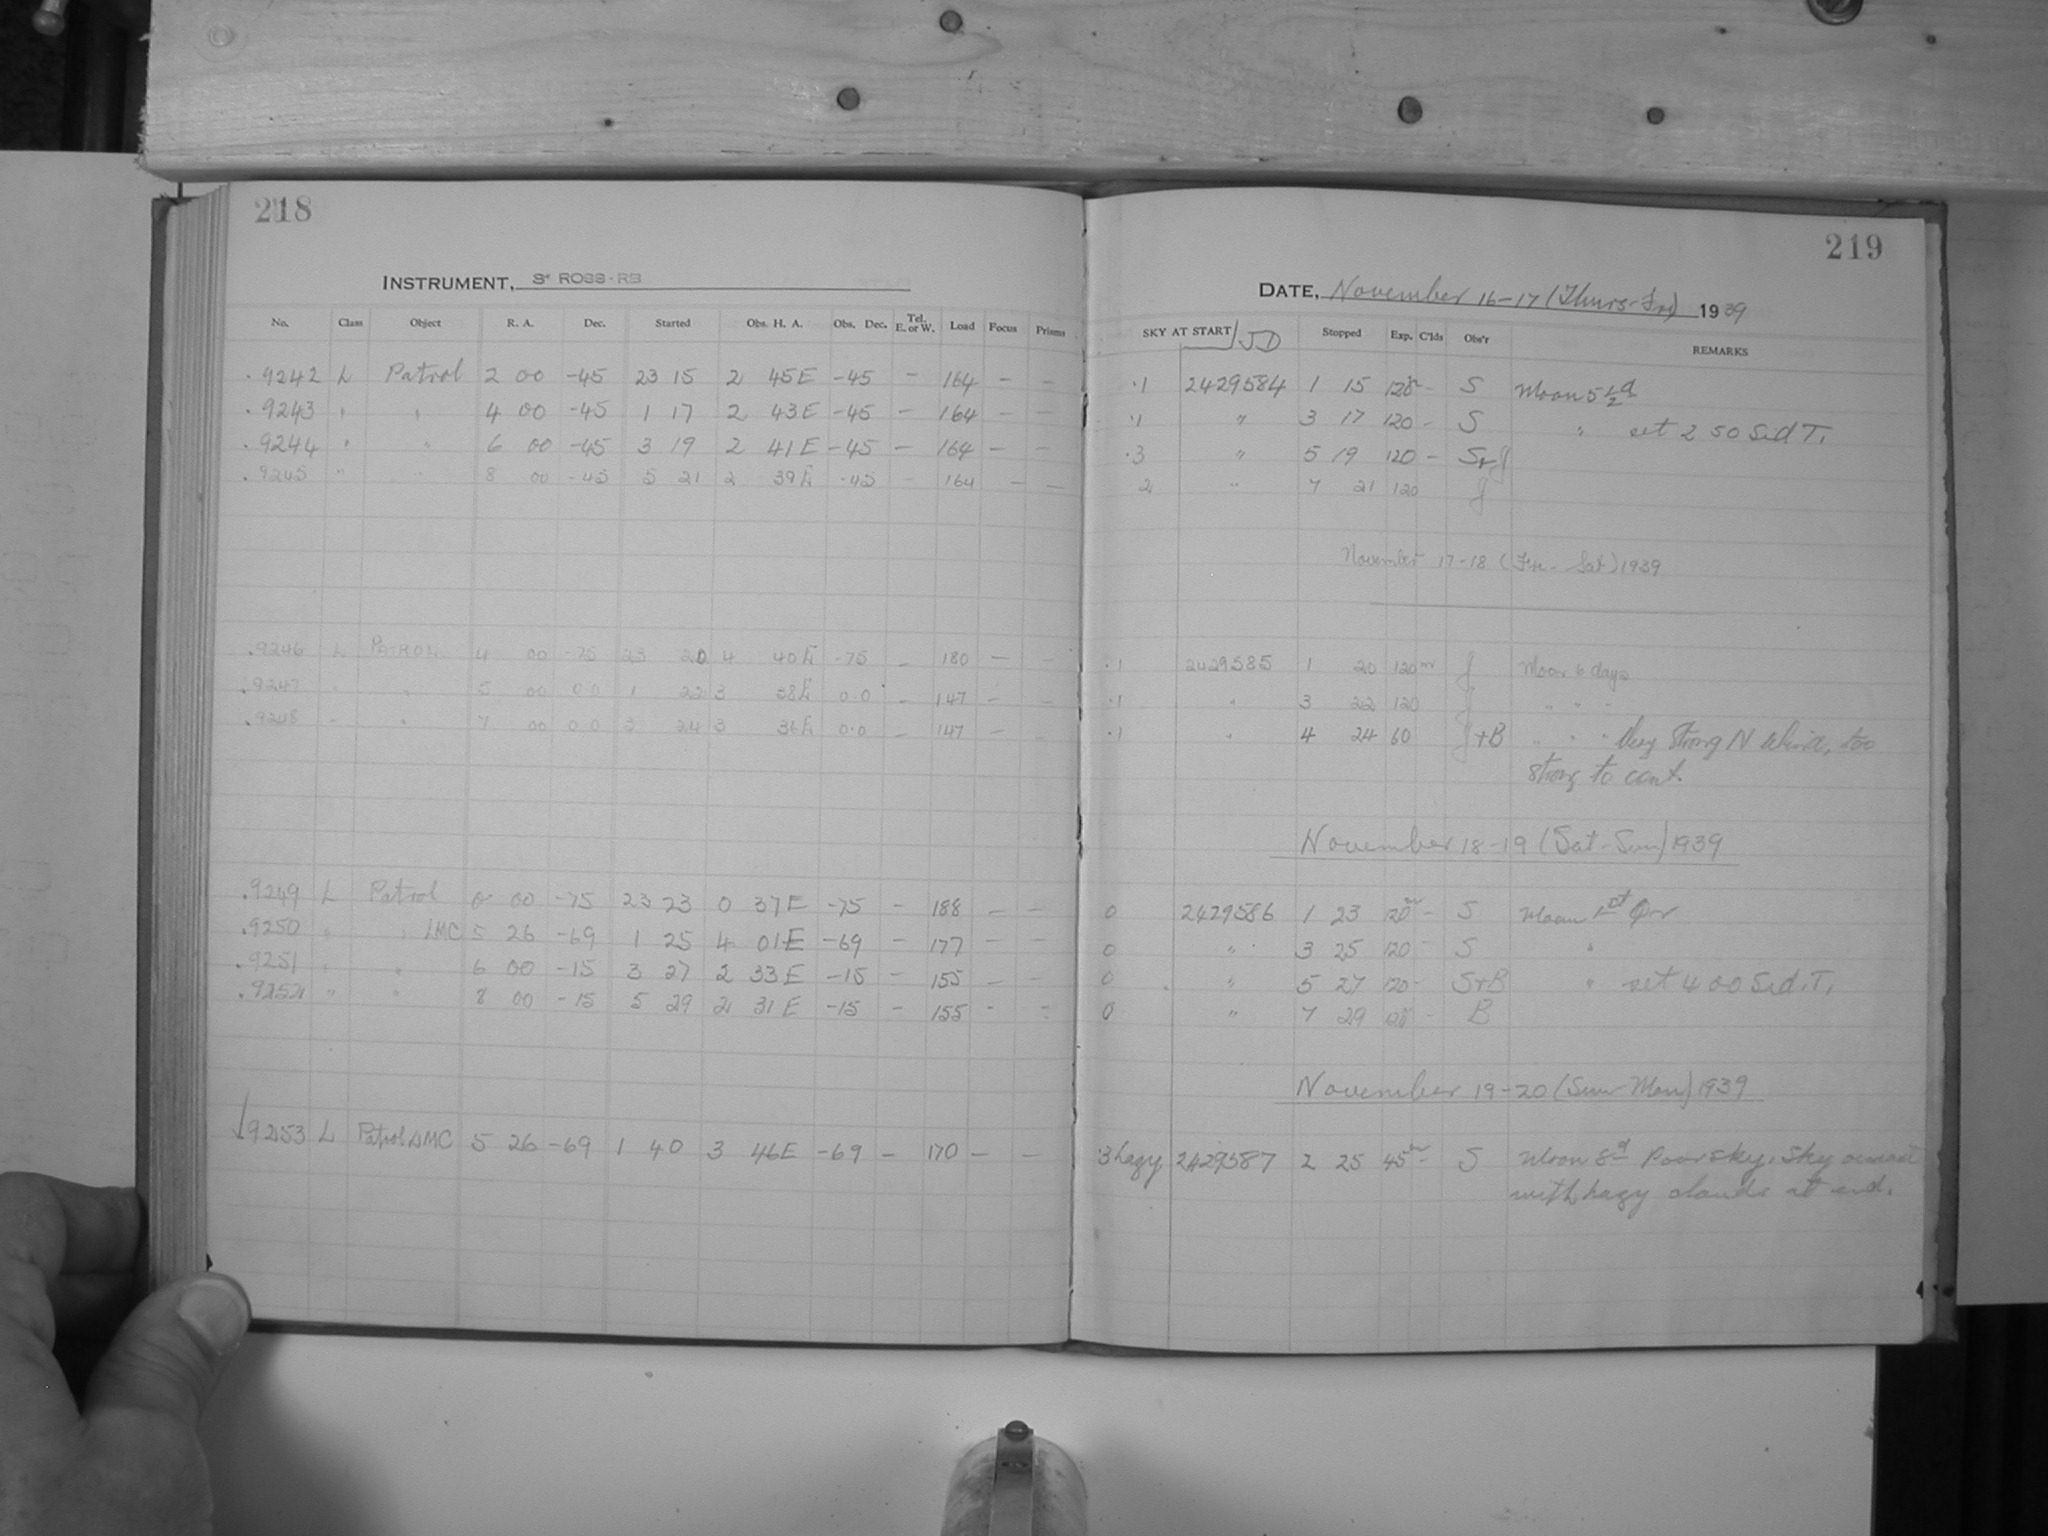 218
INSTRUMENT, 3" ROSS-RB
No. Class Object R. A. Dec. Started Obs. H. A. Obs. Dec. Tel. E. or W. Load Focus Prisms
.9242 L Patrol 2 00 -45 23 15 2 45E -45 - 164 - -
.9243 " " 4 00 -45 1 17 2 43E -45 - 164 - -
.9244 " " 6 00 -45 3 19 2 41E -45 - 164 - -
.9245 " " 8 00 -45 5 21 2 39E -45 - 164 - -
.9246 L PATROL 4 00 -75 23 20 4 40E -75 - 180 - -
.9247 " " 5 00 00 1 22 3 38E 00 - 147 - -
.9248 " " 7 00 00 3 24 3 36E 00 - 147 - -
.9249 L Patrol 0 00 -75 23 23 0 37E -75 - 188 - -
.9250 " " LMC 5 26 -69 1 25 4 01E -69 - 177 - -
.9251 " " 6 00 -15 3 27 2 33E -15 - 155 - -
.9252 " " 8 00 -15 5 29 2 31E -15 - 155 - -
9253 L Patrol LMC 5 26 -69 1 40 3 46E -69 - 170 - -
219
DATE, November 16-17 (Thurs-Fri) 1939
SKY AT START/JD Stopped Exp. C'lds Obs'r REMARKS
.1 2429584 1 15 120m - S Moon 5 1/2 d
.1 " 3 17 120 - S " set 2 50 Sid T.
.3 " 5 19 120 - S+J
2 " 7 21 120 J
November 17-18 (Fri-Sat) 1939
.1 2429585 1 20 120m J Moon 6 days
.1 " 3 22 120 J " " "
.1 " 4 24 60 J+B " " " Very strong N Wind, too
strong to cont.
November 18-19 (Sat-Sun) 1939
0 2429586 1 23 120m - S Moon 1st Qr
0 " 3 25 120 - S "
0 " 5 27 120 - S+B " set 4 00 Sid. T.
0 " 7 29 120 - B
November 19-20 (Sun-Mon) 1939
3 hazy 2429587 2 25 45m - S Moon 8d Poor sky. Sky overcast
with hazy clouds at end.